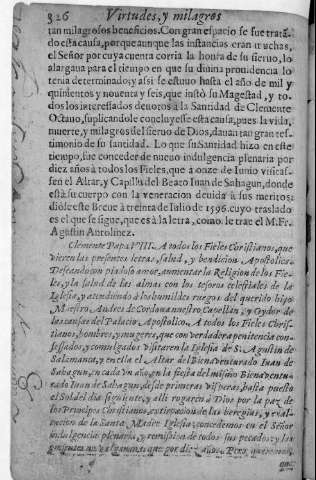 326 Virtudes, y milagros
tan milagrosos beneficios. Con gran espacio se fue tratã-
do esta causa, porque aunque las instancias eran muchas,
el Señor por cuya cuenta corria la honra de su siervo, lo
alargaua para el tiempo en que su diuina prouidencia lo
tenia determinado; y assi se estuuo hasta el año de mil y
quinientos y nouenta y seis, que instò su Magestad, y to-
dos los interessados deuotos à la Santidad de Clemente
Octauo, suplicandole concluyesse esta causa, pues la vida,
muerte, y milagros del sieruo de Dios, dauan tan gran tes-
timonio de su santidad. Lo que su Santidad hizo en este
tiempo, fue conceder de nueuo indulgencia plenaria por
diez años à todos los Fieles, que à onze de Iunio visitas-
sen el Altar, y Capilla del Beato Iuan de Sahagun, donde
està su cuerpo con la veneracion deuida à sus meritos:
diòse este Breue à treinta de Iulio de 1596. cuyo traslado
es el que se sigue, que es à la letra, como le trae el M. Fr.
Agustin Antolinez.
Clemente Papa VIII. A todos los Fieles Christianos, que
vieren las presentes letras, salud, y bendicion Apostolica.
Deseando con piadoso amor, aumentar la Religion de los Fie-
les, y la salud de las almas con los tesoros celestiales de la
Iglesia, y atendiendo à los humildes ruegos del querido hijo
Maestro Andres de Cordoua nuestro Capellan, y Oydor de
las causas del Palacio Apostolico. A todos los Fieles Chris-
tianos, hombres, y mugeres, que con verdadera penitencia con-
fessados, y comulgados visitaren la Iglesia de S. Agustin de
Salamanca, y en ella el Altar del Bienaventurado Iuan de
Sahagun, en cada vn año, en la fiesta del mismo Bienauentu-
rado Iuan de Sahagun, desde primeras visperas, hasta puesto
el Sol del dia siguiente, y alli rogaren à Dios por la paz de
los Principes Christianos, extirpacion de las heregias, y exal-
tacion de la Santa Madre Iglesia; concedemos en el Señor
indulgencia plenaria, y remission de todos sus pecados; y las
que por diez años.
que